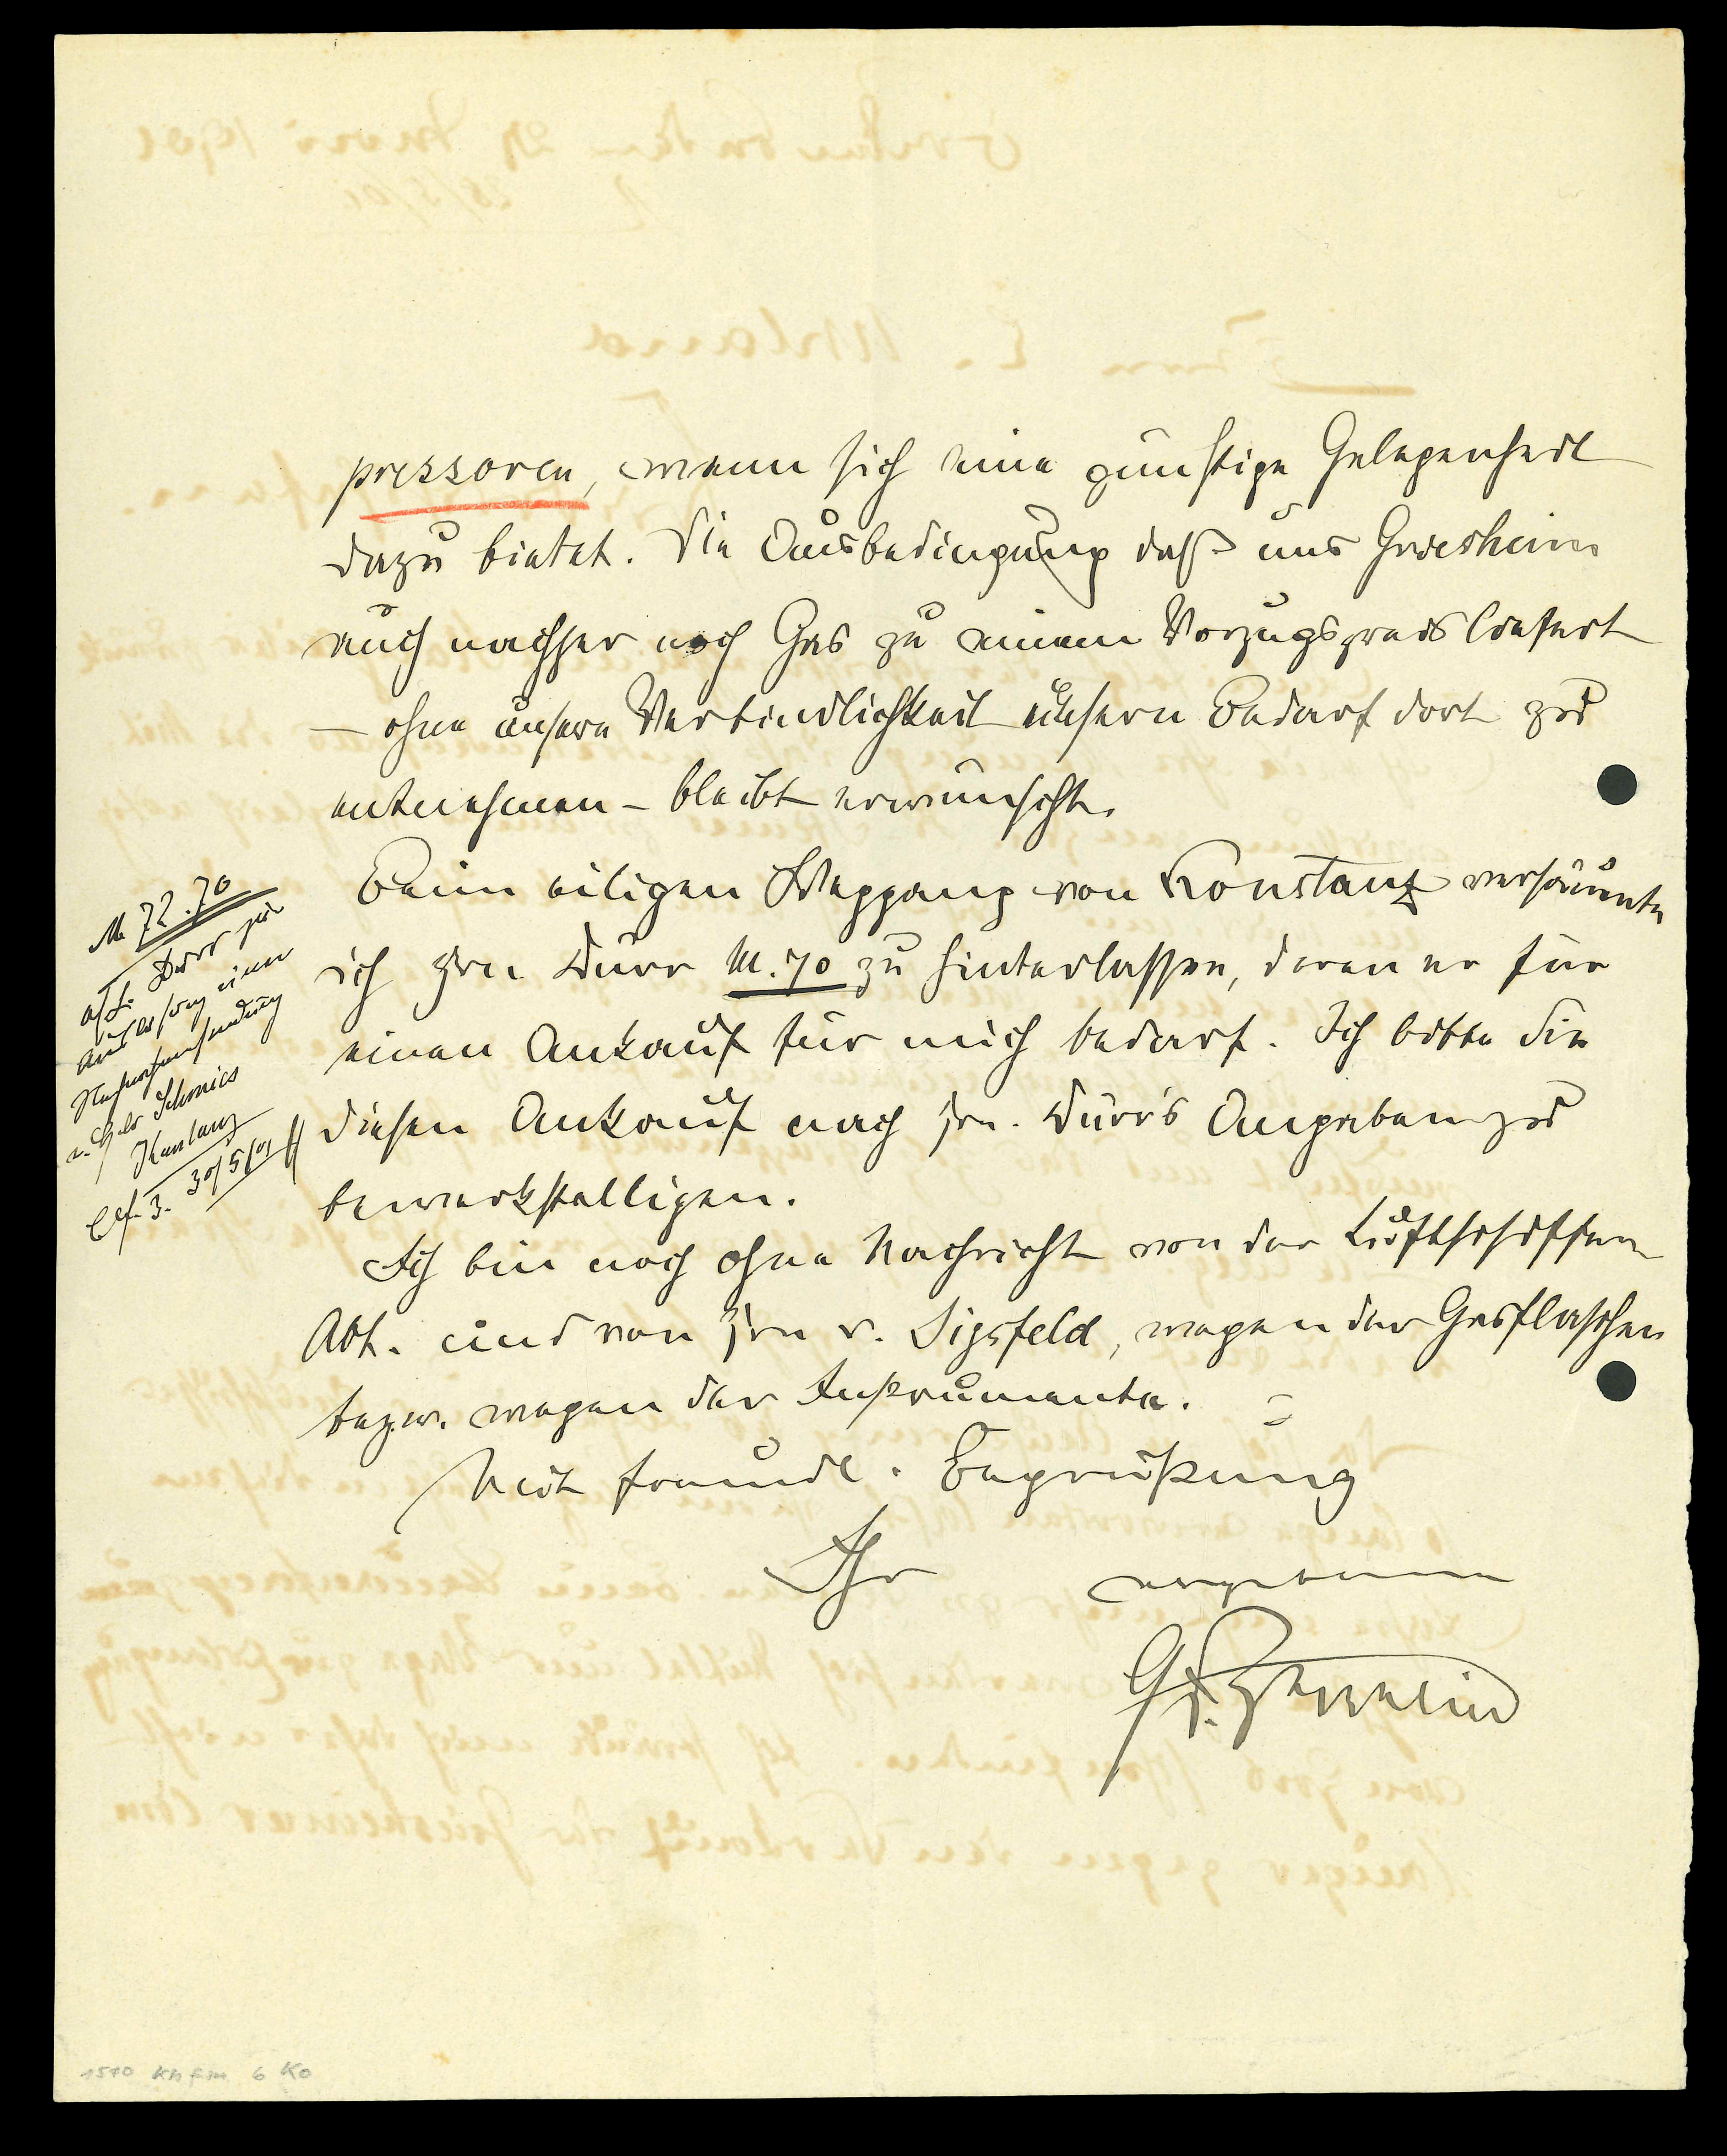 pressoren, wenn sich eine günstige Gelegenheit
dazu bietet. Die Ausbedingung daß uns Griesheim
auch nachher noch Gas zu einem Vorzugspreis liefert
– ohne unsere Verbindlichkeit unsern Bedarf dort zu
entnehmen – bleibt erwünscht.
Beim eiligen Weggang von Konstanz versäumte
ich Hrn. Dürr M. 70 zu hinterlassen, deren er für
einen Ankauf für mich bedarf. Ich bitte Sie
diesen Ankauf nach Hrn. Dürr's Angaben zu
bewerkstelligen.
Ich bin noch ohne Nachricht von der Luftschiffer
Abt. und von Hrn v. Sigsfeld, wegen der Gasflaschen
bezw. wegen der Instrumente.
Mit freundl. Begrüßung
Ihr ergebener
Gf. Zeppelin
M 72.70
Dürr für
einer
Konstanz
30/5/01
1570 6 Ko